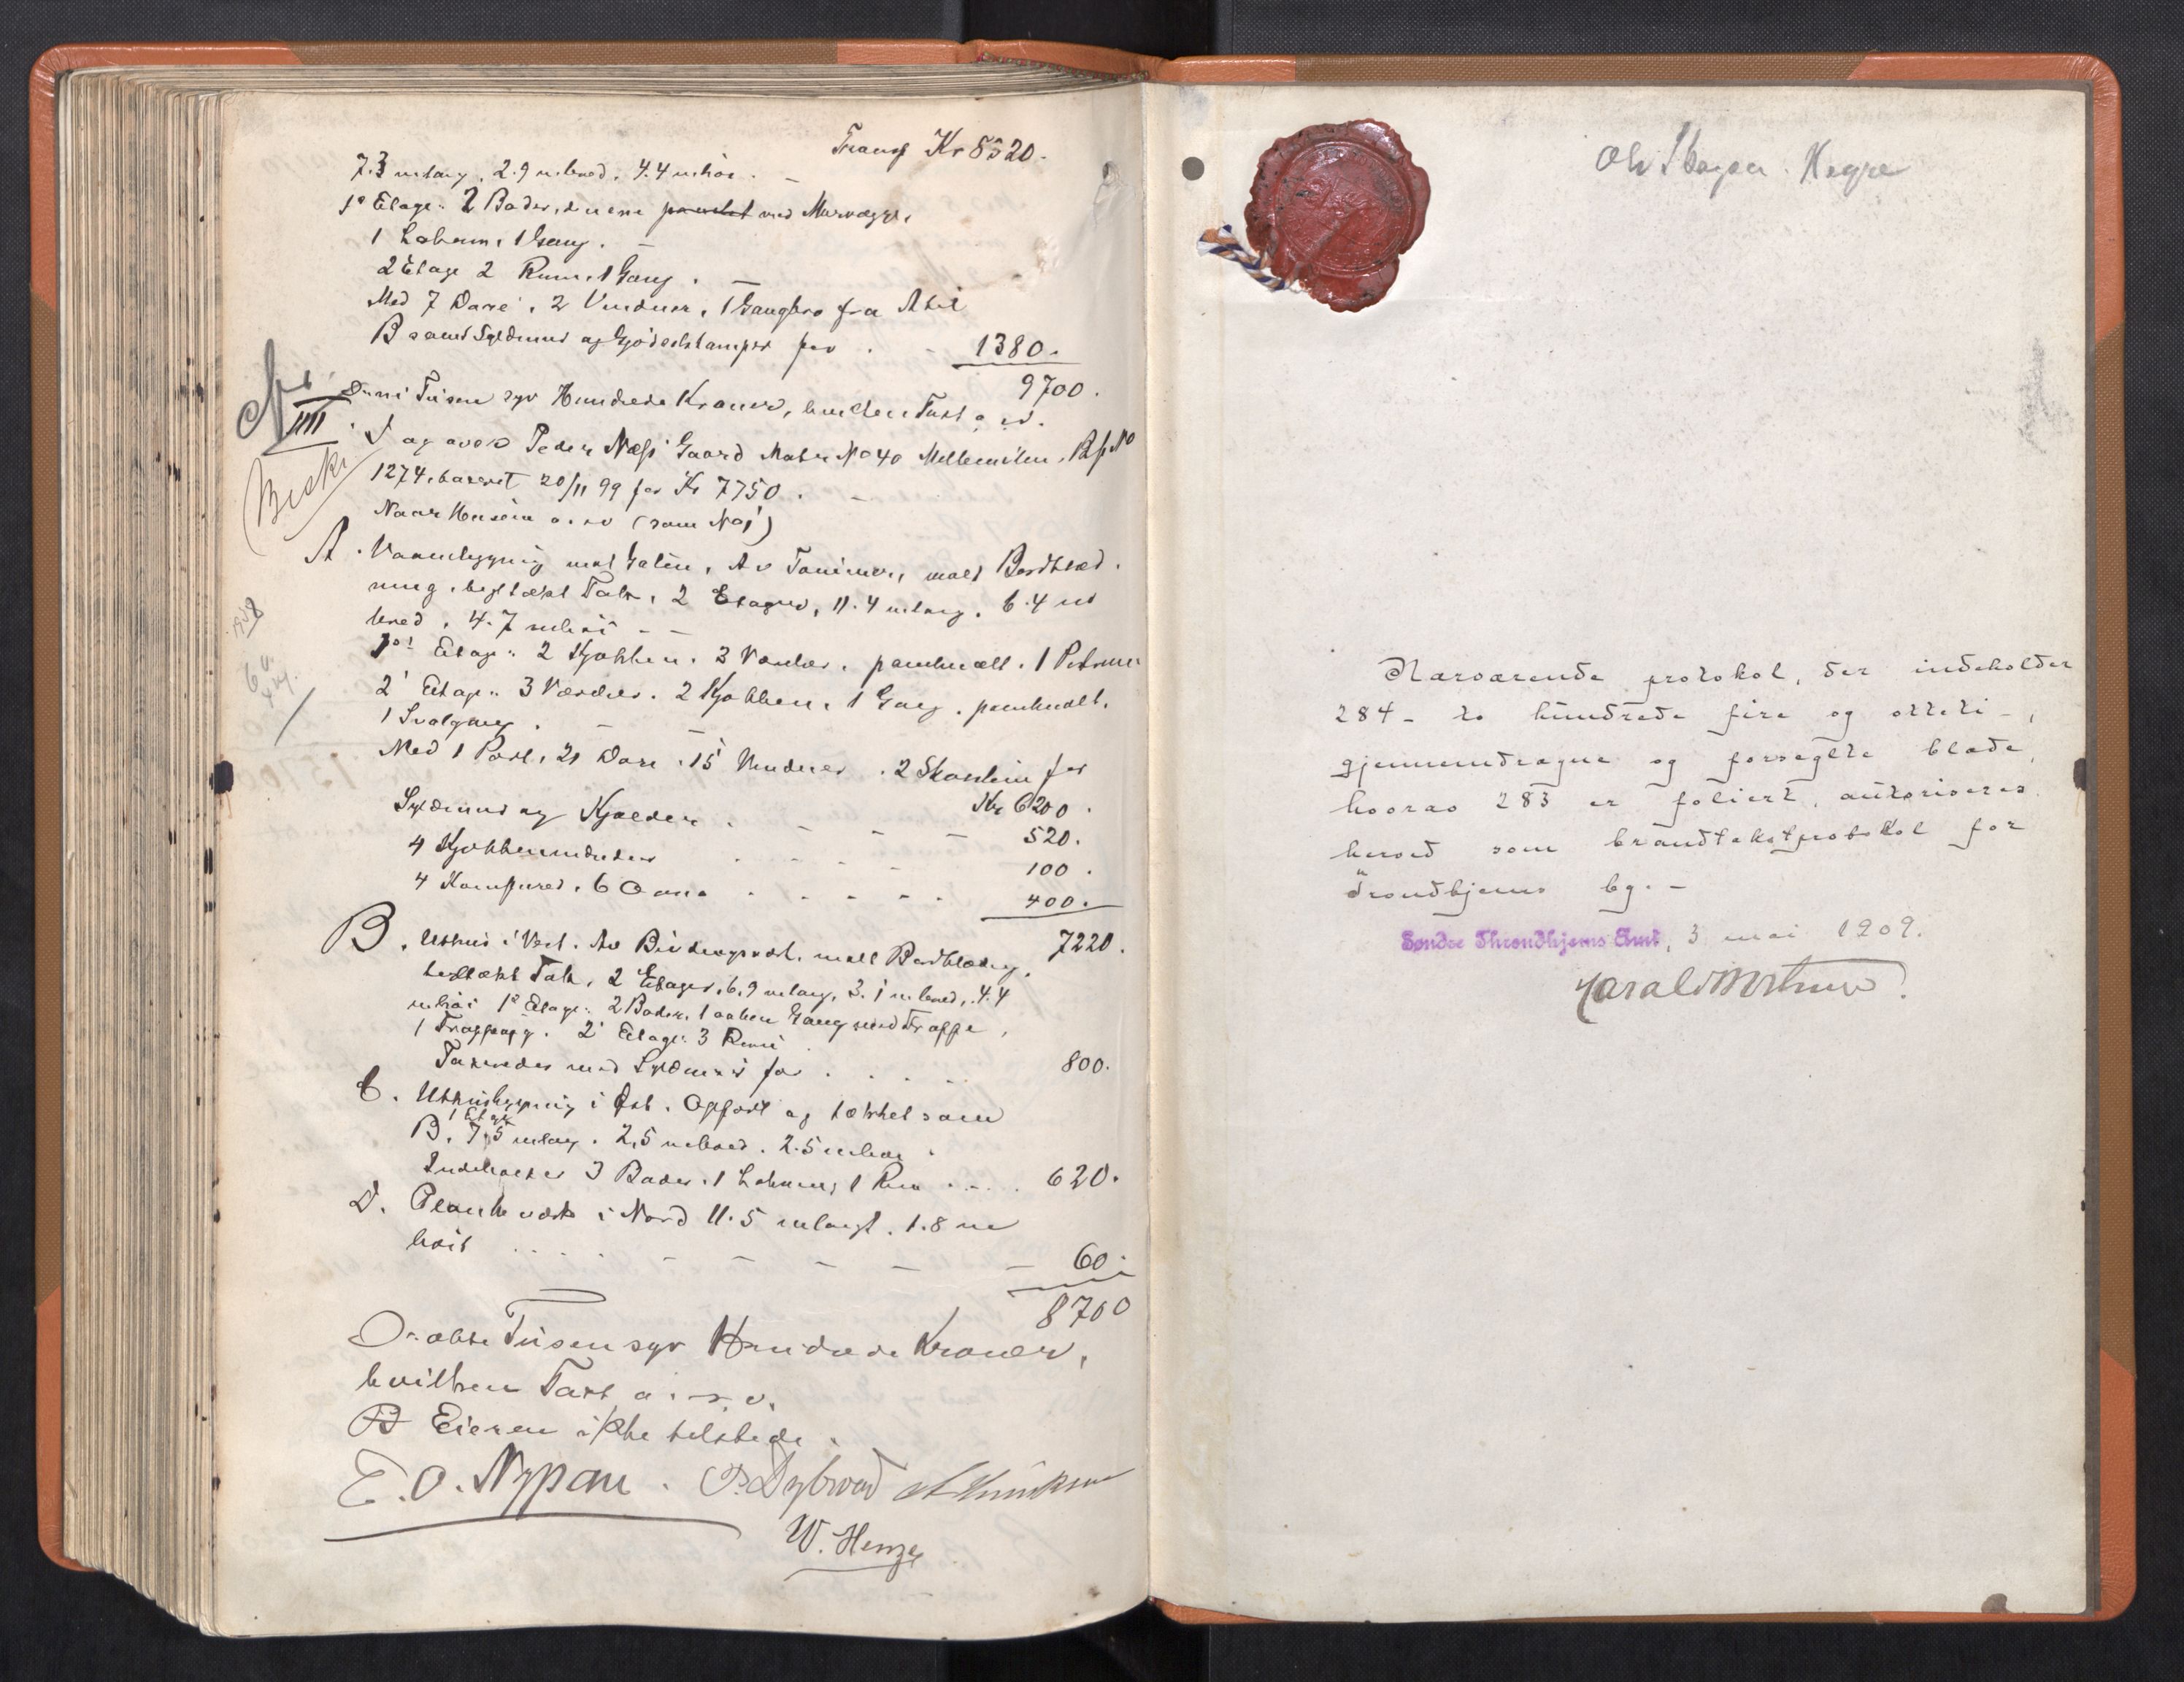 Transp Kr 8320.
7.3 m lang, 2.9 m bred, 4.4 m høi. –
1ᵉ Etage: 2 Boder, den ene panelet med Murvægge,
1 Lokum, 1 Gang. –
2 Etage 2 Rum, 1 Gang. –
Med 7 Døre, 2 Vinduer, 1 Gangbro fra A til
B samt Syldmur og for . - 1380.
9700.
Er ni Tusen syv Hundrede Kroner, hvilken Takst o. s. v.
No IIII. Peder Næss Gaard Matr No 40 Mellemilen, Bf No
(Beskr.
1274, taxeret 20/11 99 for Kr 7750. –
Naar Husene o. s. v (som No 1)
A. Vaaningbygning mot Gaten, Av Tømmer, malt Bordklæd-
ning, tegltækt Tak, 2 Etager, 11.4 m lang, 6.4 m
bred, 4.7 m høi - –
1ᵉ Etage: 2 Kjøkken, 3 Værelser, panelmalt, 1
2' Etage: 3 Værelser, 2 Kjøkken, 1 Gang, panelmalt,
1 Svalgang. –
Med 1 Port, 21 Døre, 15 Vinduer, 2 Skorstein for
Kr 6200.
Syldmur og Kjelder . - - – 520.
4 . - - – 100.
4 Komfurer, 6 Ovne . - - - 400.
7220.
B. Uthus i Vest. Av Bindingsverk, malt Bordklædng,
teglækt Tak, 2 Etager, 6.9 m lang, 3.1 m bred, 4.4
m høi 1ᵉ Etage: 2 Boder, 1 aaben Gang med Trappe,
1 Trappegg. 2' Etage: 3 Rum
Taxeredes med Syldmur for . . . . 800.
C. Uthusbygning i Øst. Opført og tækket som
1 Etage
B, 7,5 m lang. 2,5 m bred. 2.5 m høi.
Indeholder 3 Boder, 1 Lokum, 1 Rum . . . . 620.
D. Plankeværk i Nord 11.5 m langt. 1.8 m
høit . . . – – – – – 60.
8700
Er otte Tusen syv Hundrede Kroner,
hvilken Takst o. s. v.
Eieren ikke tilstede.
E. O. Nypan. P. Dybwad
W. Henze
Ole Hegre
Nærværende protokol, der indeholder
284 – to hundrede fire og otteti –,
gjennemdragne og forseglte blade,
hvorav 283 er foliert, autoriseres
herved som brandtakstprotokol for
Trondhjems by. –
Søndre Throndhjems Amt, 3 mai 1909.
Harald Bothner.